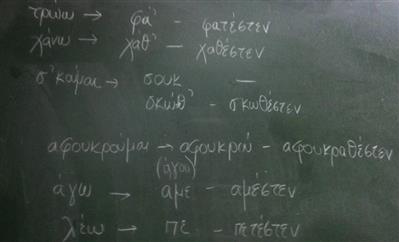 τρώω → φά' - φατέστεν
χάνω → χαθ' - χαθέστεν
σ'κούμαι → σουκ —
σκωθ' - σκωθέστεν
αφουκρούμαι → αφουκρού - αφουκραθέστεν
(άγου)
άγω → αμε - αμέστεν
λέω → πε - πετέστεν